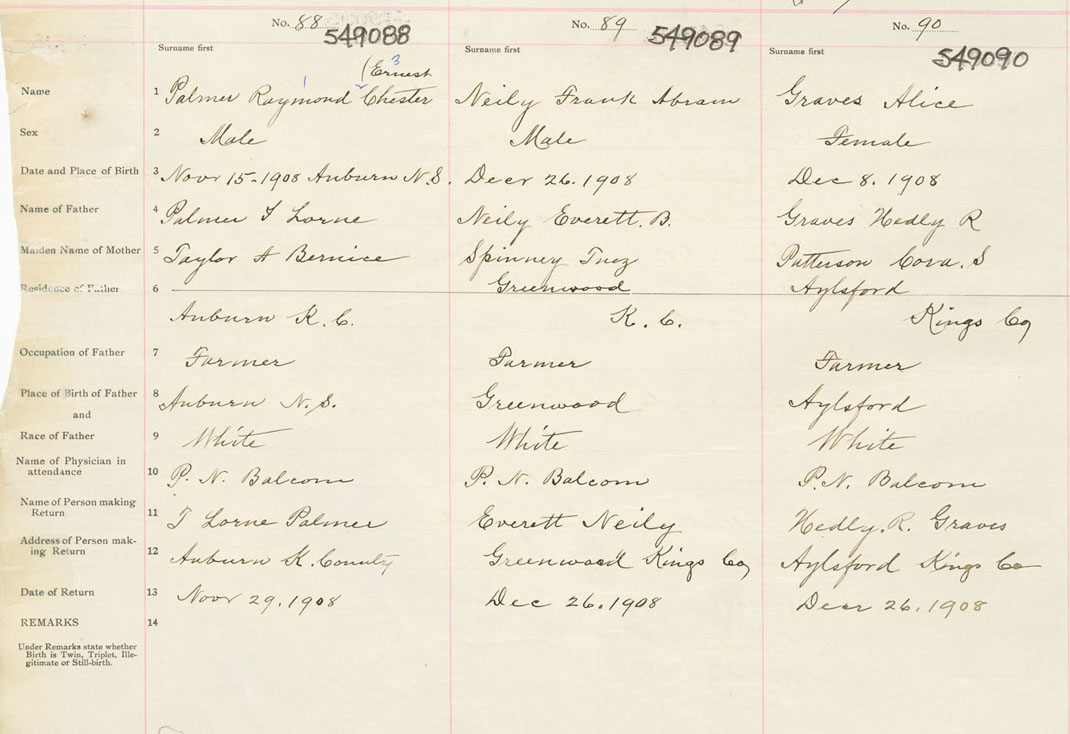 No. 88 No. 89 No. 90
549088 549089 549090
Surname first Surname first Surname first
(Ernest 3
Name 1 Palmer Raymond Chester Neily Frank Abram Graves Alice
Sex 2 Male Male Female
Date and Place of Birth 3 Novr 15-1908 Auburn N.S. Decr 26.1908 Dec 8.1908
Name of Father 4 Palmer T Lorne Neily Everett. B. Graves Hedly R
Maiden Name of Mother 5 Taylor A Bernice Spinney Inez Patterson Cora. S
Residence of Father 6 Greenwood Aylsford
Auburn K. C. K. C. Kings Co
Occupation of Father 7 Farmer Farmer Farmer
Place of Birth of Father 8 Auburn N.S. Greenwood Aylsford
and
Race of Father 9 White White White
Name of Physician in
attendance 10 P. N. Balcom P. N. Balcom P.N. Balcom
Name of Person making
Return 11 T Lorne Palmer Everett Neily Hedly. R. Graves
Address of Person mak-
ing Return 12 Auburn K. County Greenwood Kings Co Aylsford Kings Co
Date of Return 13 Novr 29.1908 Dec 26.1908 Decr 26.1908
REMARKS 14
Under Remarks state whether
Birth is Twin, Triplet, Ille-
gitimate or Still-birth.